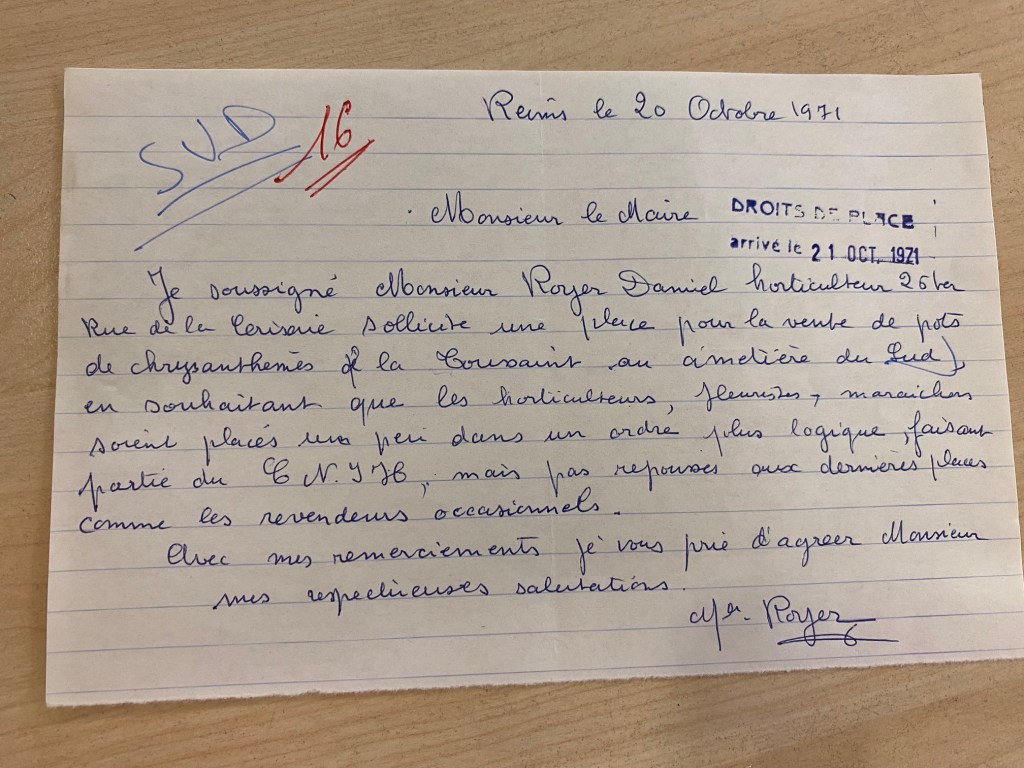 SUD 16
Reims le 20 Octobre 1971
Monsieur le Maire
DROITS DE PLACE
arrivé le 21 OCT. 1971
Je soussigné Monsieur Royer Daniel horticulteur 26 ter
Rue de la Cerisaie sollicite une place pour la vente de pots
de chrysanthemes la Toussaint au cimetière du Sud
en souhaitant que les horticulteurs, fleuristes, maraichers
soient placés un peu dans un ordre plus logique, faisant
partie du C N.I H, mais pas repousses aux dernières places
comme les revendeurs occasionnels.
Avec mes remerciements je vous prie d'agreer Monsieur
mes respectueuses salutations.
Mr. Royer